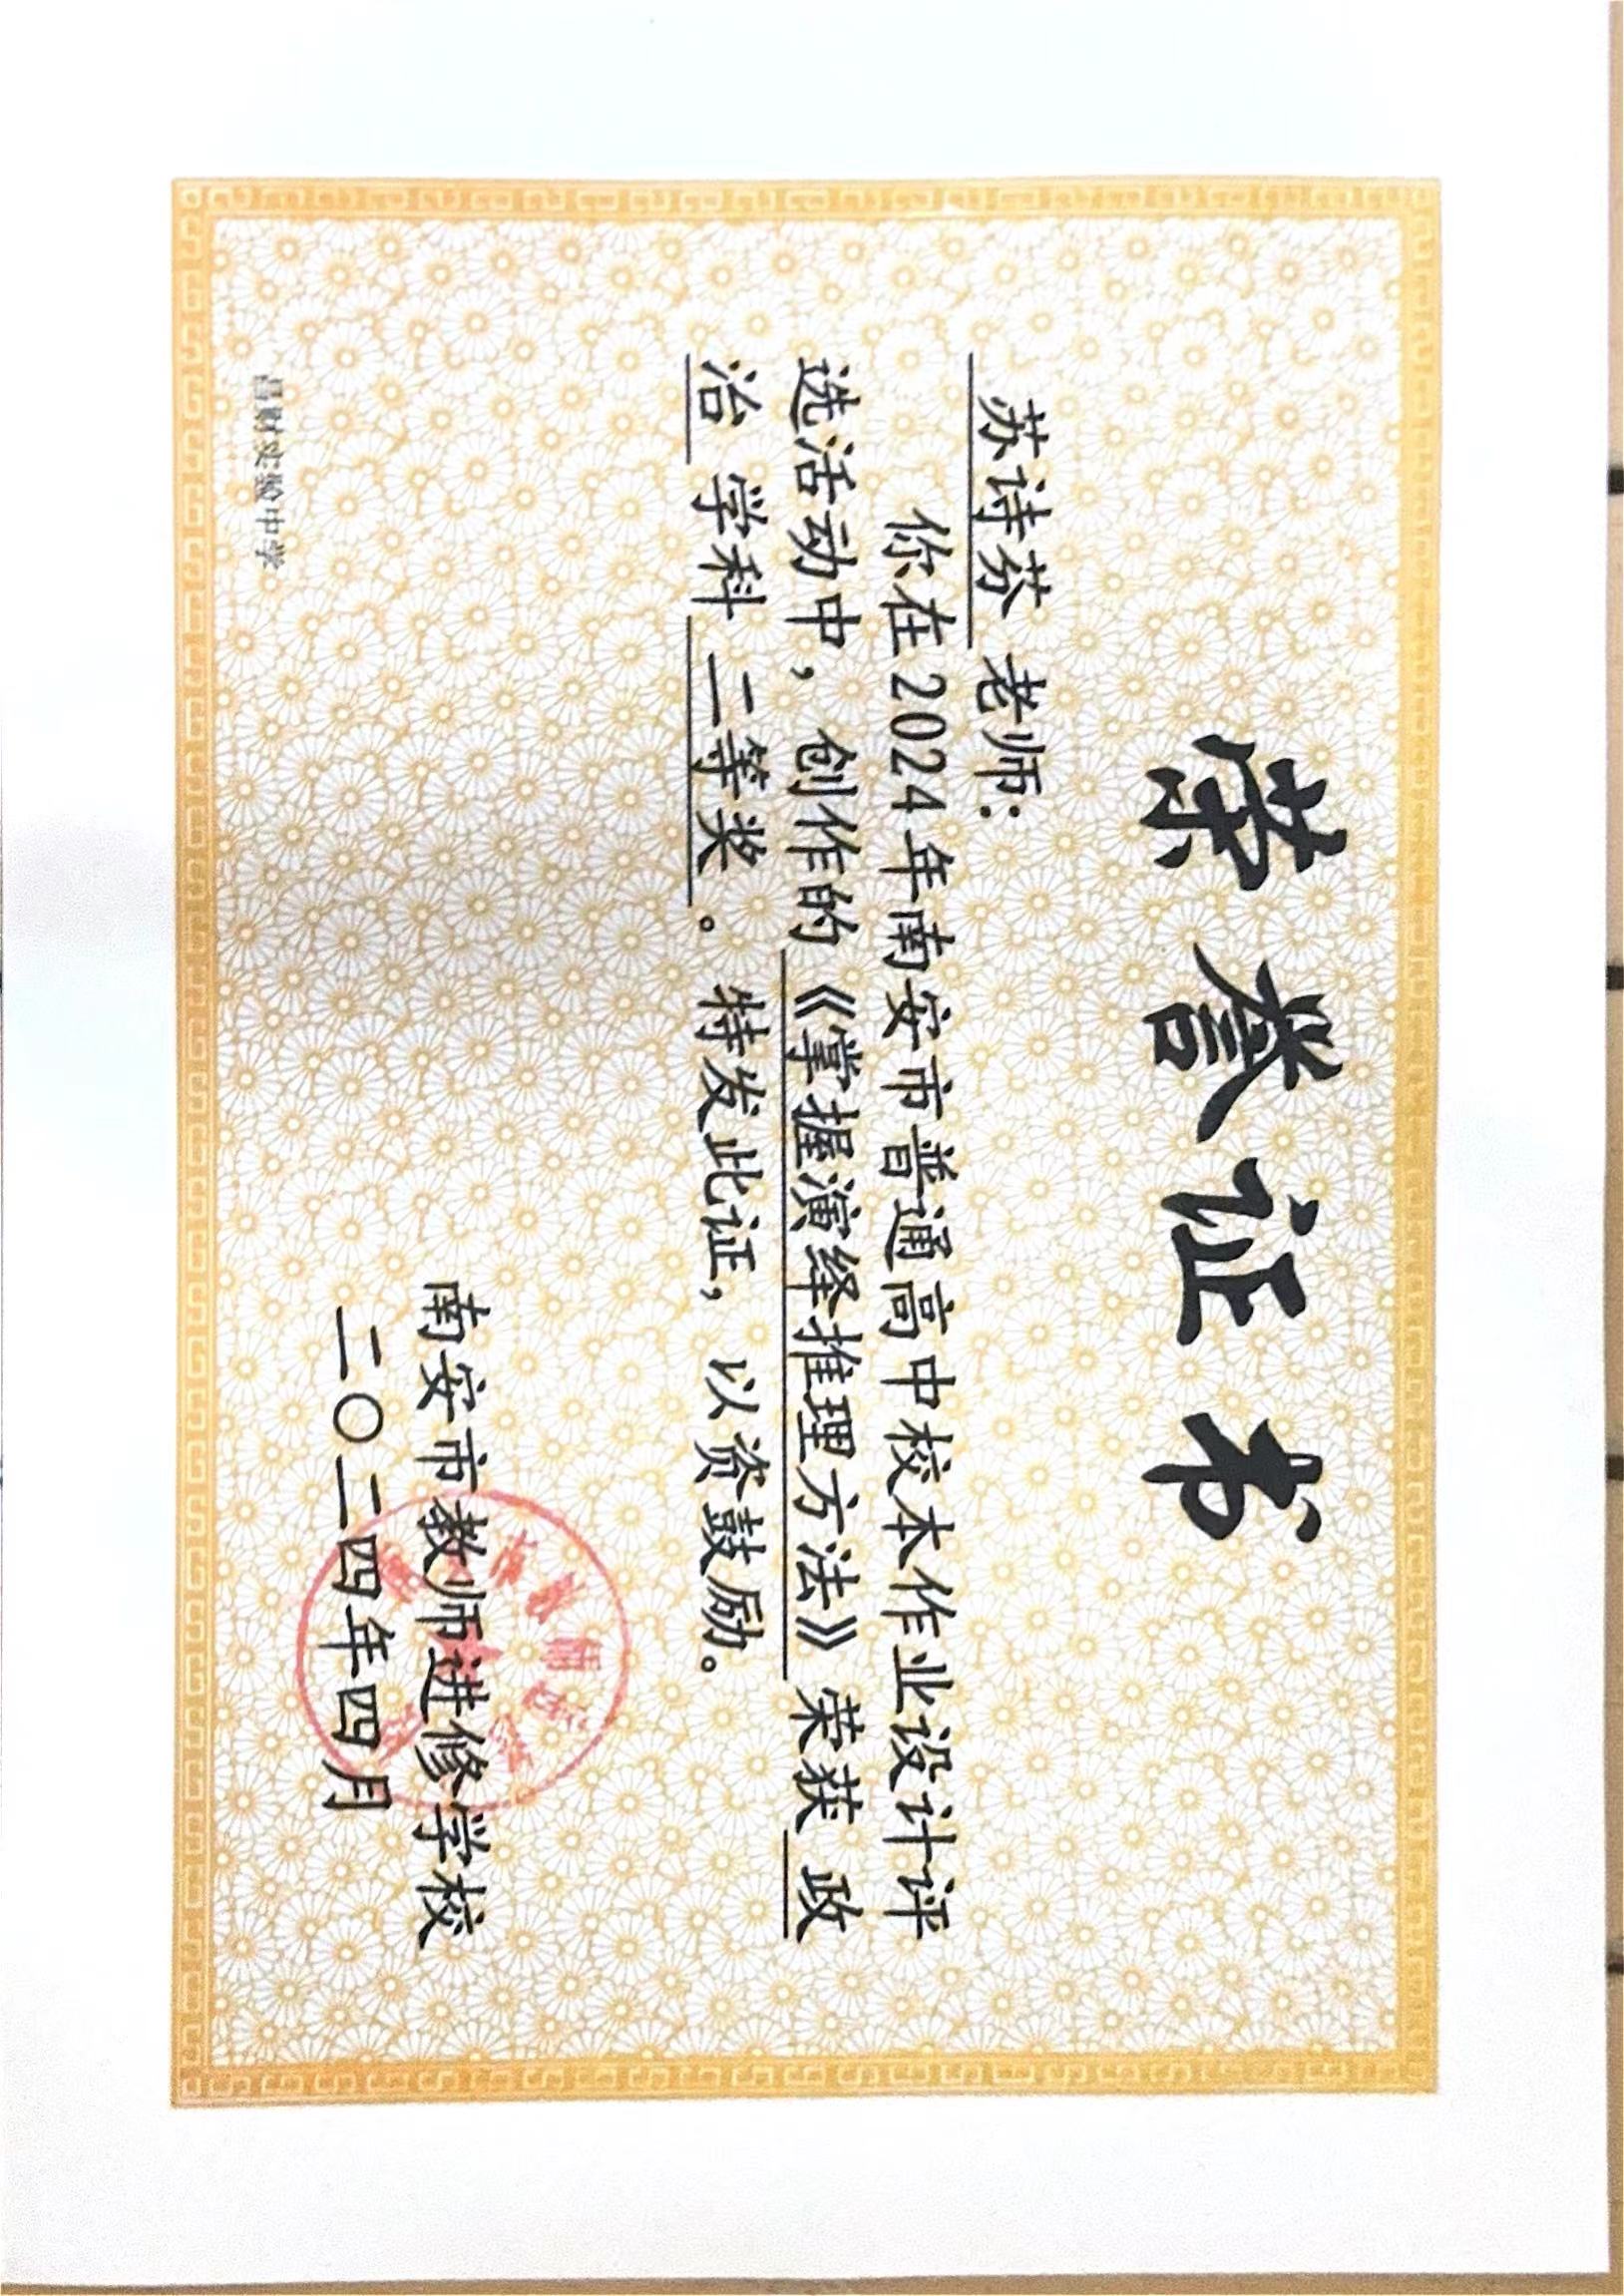 荣誉证书
苏诗芬 老师:
你在2024年南安市普通高中校本作业设计评
选活动中，创作的《掌握演绎推理方法》荣获 政
治 学科 二等奖 。特发此证，以资鼓励。
南安市教师进修学校
二〇二四年四月
昌财实验中学